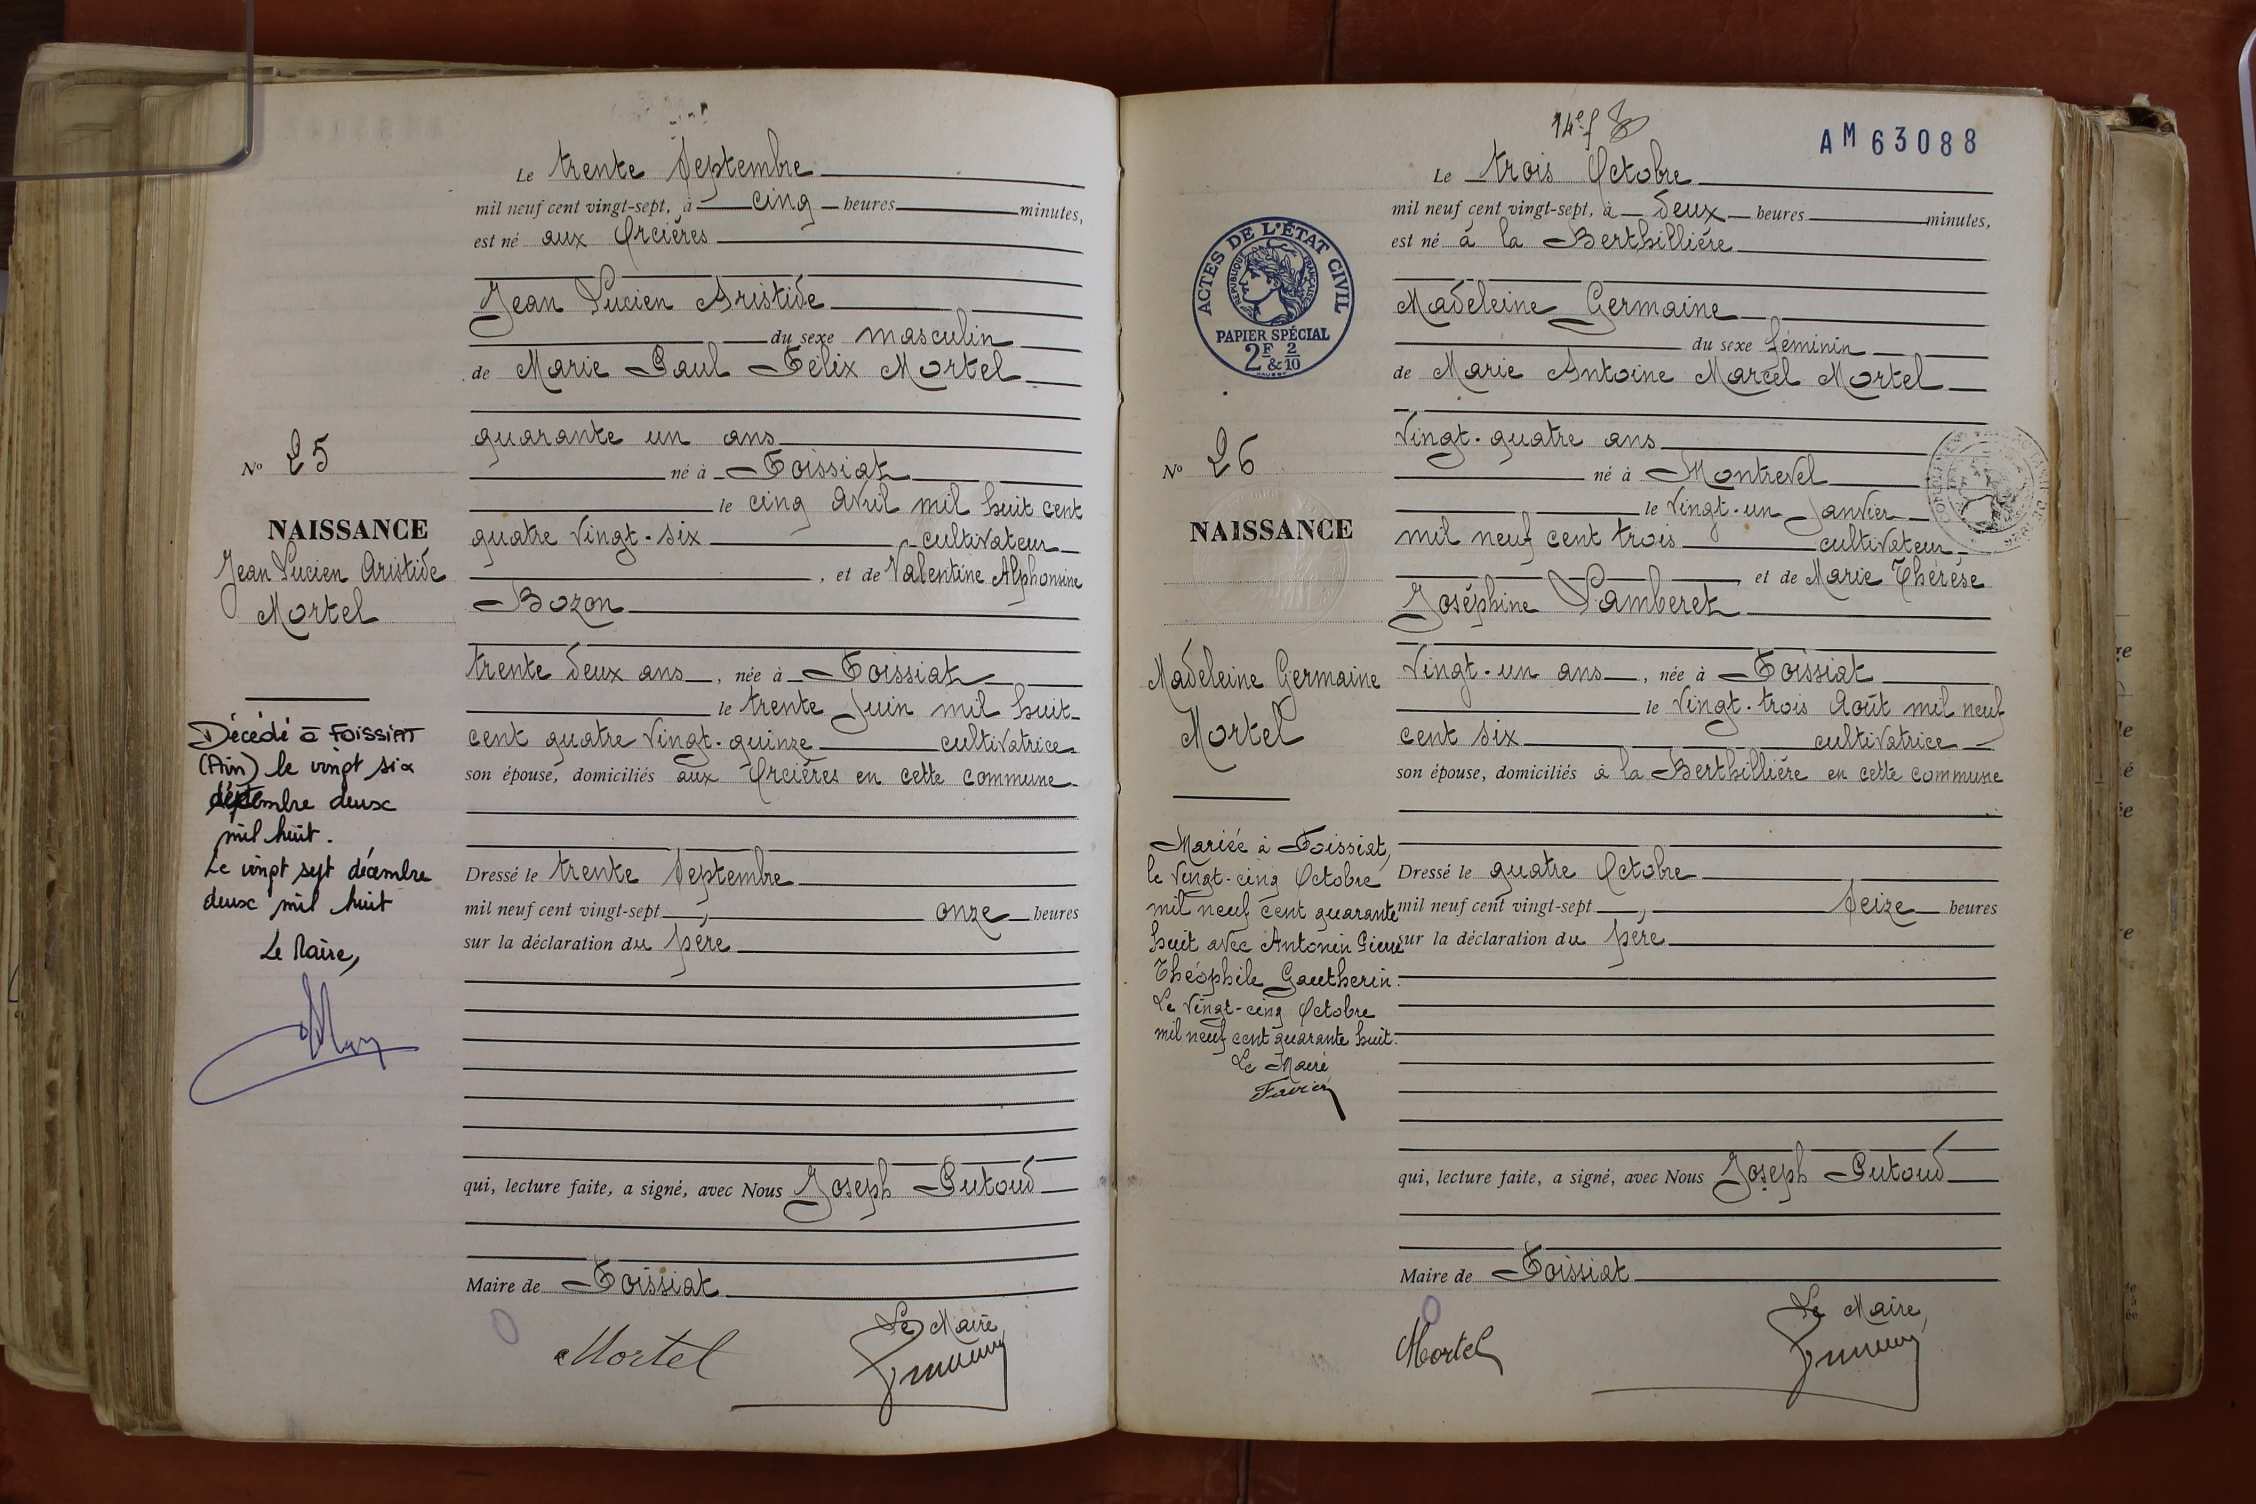 Le trente Septembre
mil neuf cent vingt-sept, à cinq heures minutes,
est né aux Orcières
Jean Lucien Aristide
du sexe masculin
de Marie Paul Félix Mortel
quarante un ans
né à Foissiat
le cinq Avril mil huit cent
quatre vingt-six cultivateur
, et de Valentine Alphonsine
Bozon
trente deux ans, née à Foissiat
le trente Juin mil huit
cent quatre vingt-quinze cultivatrice
son épouse, domiciliés aux Orcières en cette commune
Dressé le trente Septembre
mil neuf cent vingt-sept, onze heures
sur la déclaration du père
qui, lecture faite, a signé, avec Nous Joseph Putoud
Maire de Foissiat
Le Maire
Mortel
No 25
NAISSANCE
Jean Lucien Aristide
Mortel
Décédé à FOISSIAT
(Ain) le vingt six
décembre deux
mil huit.
Le vingt sept décembre
deux mil huit
Le Maire,
14e f
AM 63088
Le trois Octobre
mil neuf cent vingt-sept, à deux heures minutes,
est né à la Berthillière
Madeleine Germaine
du sexe féminin
de Marie Antoine Marcel Mortel
vingt-quatre ans
né à Montrevel
le vingt-un Janvier
mil neuf cent trois cultivateur
et de Marie Thérèse
Joséphine Lamberet
vingt-un ans, née à Foissiat
le vingt-trois Août mil neuf
cent six cultivatrice
son épouse, domiciliés à la Berthillière en cette commune
Dressé le quatre Octobre
mil neuf cent vingt-sept, seize heures
sur la déclaration du père
qui, lecture faite, a signé, avec Nous Joseph Putoud
Maire de Foissiat
Le Maire,
Mortel
ACTES DE L'ÉTAT CIVIL
RÉPUBLIQUE FRANÇAISE
PAPIER SPÉCIAL
2F & 2/10
No 26
NAISSANCE
Madeleine Germaine
Mortel
Mariée à Foissiat,
le vingt-cinq Octobre
mil neuf cent quarante
huit avec Antonin Pierre
Théophile Gautherin.
Le vingt-cinq Octobre
mil neuf cent quarante huit.
Le Maire